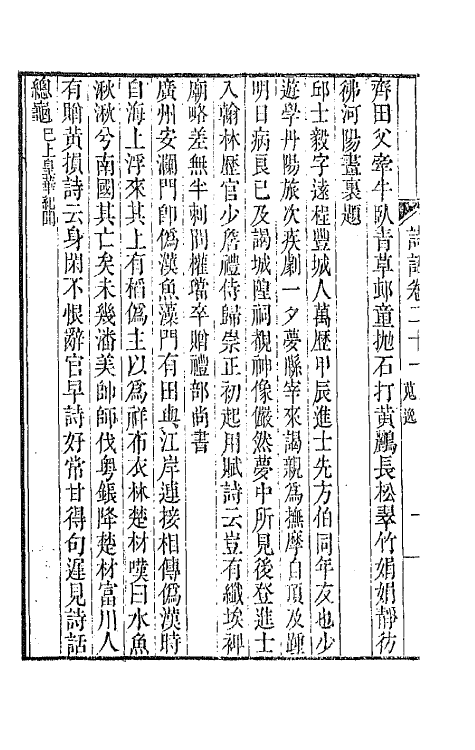 詩話卷二十一 蒐逸
齊田父牽牛臥青草邨童拋石打黃鸝長松翠竹娟娟靜彷
彿河陽畫裏題
邱士毅字遠程豐城人萬歷甲辰進士先方伯同年友也少
遊學丹陽旅次疾劇一夕夢縣宰來謁親爲撫摩自頂及踵
明日病良已及謁城隍祠覩神像儼然夢中所見後登進士
入翰林歷官少詹禮侍歸崇正初起用賦詩云豈有纖埃裨
廟略差無半刺問權璫卒贈禮部尚書
廣州安瀾門卽僞漢魚藻門有田與江岸連接相傳僞漢時
自海上浮來其上有稻僞主以爲祥布衣林楚材嘆曰水魚
湫湫兮南國其亡矣未幾潘美帥師伐粵鋹降楚材富川人
有贈黃損詩云身閑不恨辭官早詩好常甘得句遲見詩話
總龜已上皇華紀聞